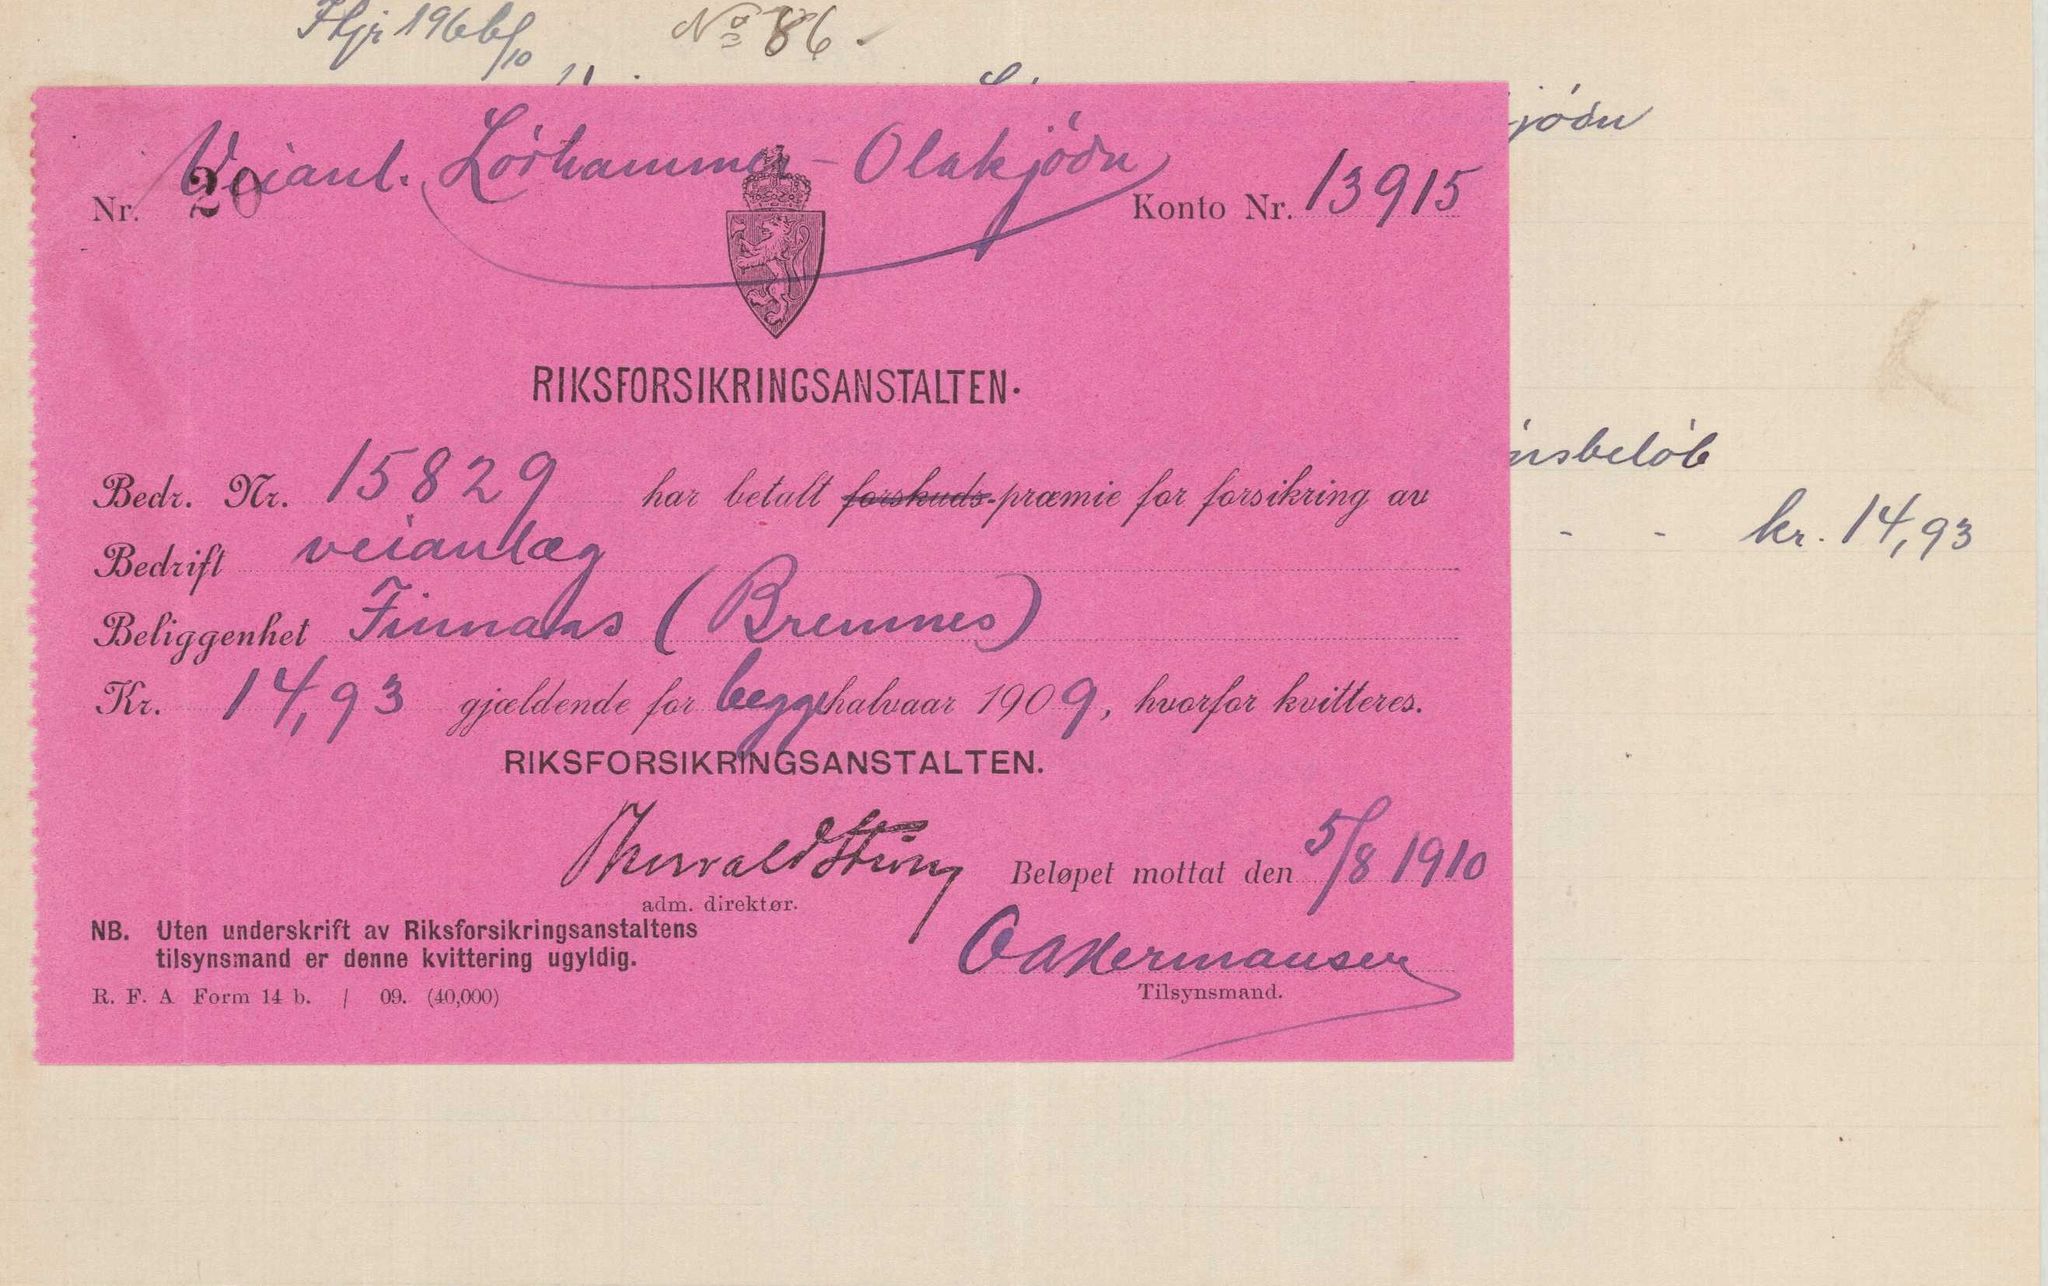 No 86.
jödn
Veianl. Lörhammer - Olakjödn
Nr. 20
Konto Nr. 13915
RIKSFORSIKRINGSANSTALTEN.
nsbelöb
Bedr. Nr. 15829 har betalt forskuds-præmie for forsikring av
kr. 14,93
Bedrift veianlæg
Beliggenhet Finnaas (Bremnes)
Kr. 14,93 gjældende for begge halvaar 1909, hvorfor kvitteres.
RIKSFORSIKRINGSANSTALTEN.
Beløpet mottat den 5/8 1910
adm. direktør.
NB. Uten underskrift av Riksforsikringsanstaltens
tilsynsmand er denne kvittering ugyldig.
OAHermansen
Tilsynsmand.
R. F. A Form 14 b. / 09. (40,000)